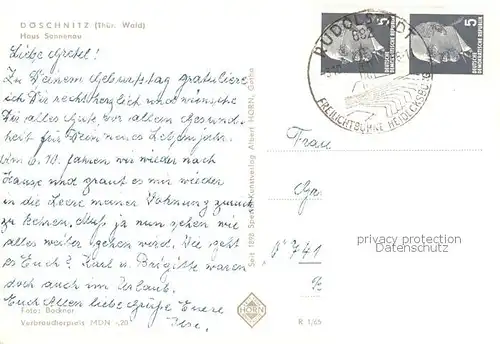 DÖSCHNITZ (Thür. Wald)
Haus Sonnenau
Liebe Gretel!
Zu Deinem Geburtstag gratuliere
ich Dir recht herzlich und wünsche
Dir alles Gute vor allem Gesund-
heit für Dein neues Lebensjahr.
Am 6.10. fahren wir wieder nach
Hause und graut es mir wieder
in die Leere meiner Wohnung zurück
zu kehren. Muß ja nun sehen wie
alles weiter gehen wird. Wie geht
es Euch? Karl u. Brigitte waren
doch auch im Urlaub.
Euch Allen liebe Grüße Eure
Ilse.
Foto: Bockner
Verbraucherpreis MDN -,20
Seit 1898 Spezial-Kunstverlag Albert HORN, Gotha
HORN
R 1/65
RUDOLSTADT
682
FREILICHTBÜHNE HEIDECKSBURG
5
DEUTSCHE
DEMOKRATISCHE REPUBLIK
5
DEUTSCHE
DEMOKRATISCHE REPUBLIK
Frau
741
privacy protection
VDMedien24.de